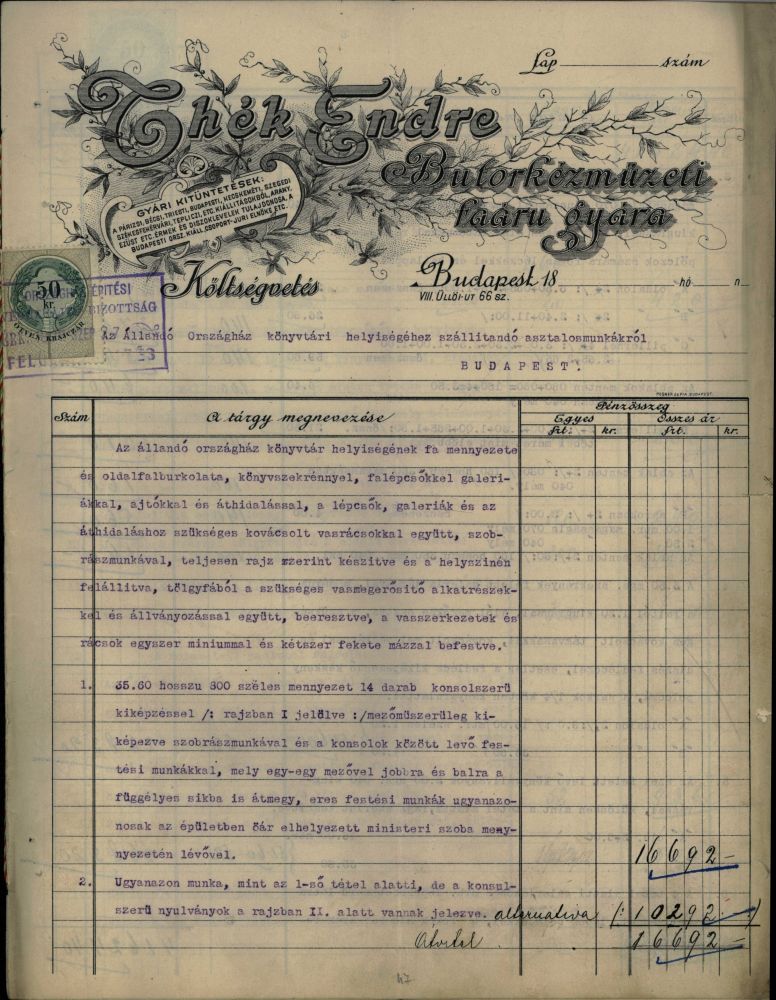 Lap szám
Thék Endre
Butorkézmüzeti
faáru gyára
GYÁRI KITÜNTETÉSEK:
A PÁRIZSI, BÉCSI, TRIESTI, BUDAPESTI, KECSKEMÉTI, SZEGEDI
SZÉKESFEHÉRVÁRI, TEPLICZI, ETC. KIÁLLITÁSOKRÓL, ARANY,
EZÜST ETC. ÉRMEK ÉS DISZOKLEVELEK TULAJDONOSA, A
BUDAPESTI ORSZ. KIÁLL. CSOPORT-JURI ELNÖKE ETC.
50
kr.
ÖTVEN KRAJCZÁR
ÉPITÉSI
BIZOTTSÁG
Költségvetés
Budapest 18 hó n.
VIII. ÜLLŐI-UT 66 SZ.
Az Állandó Országház könyvtári helyiségéhez szállitandó asztalosmunkákról
BUDAPEST.
Szám
A tárgy megnevezése
Pénzösszeg
Egyes Összes ár
frt. kr. frt. kr.
Az állandó országház könyvtár helyiségének fa mennyezete
és oldalfalburkolata, könyvszekrénnyel, falépcsőkkel galeri-
ákkal, ajtókkal és áthidalással, a lépcsők, galeriák és az
áthidaláshoz szükséges kovácsolt vasrácsokkal együtt, szob-
rászmunkával, teljesen rajz szerint készitve és a helyszinén
felállitva, tölgyfából a szükséges vasmegerősitő alkatrészek-
kel és állványozással együtt, beeresztve, a vasszerkezetek és
rácsok egyszer miniummal és kétszer fekete mázzal befestve.
1. 35.60 hosszu 800 széles mennyezet 14 darab konsolszerü
kiképzéssel /: rajzban I jelölve :/mezőmüszerüleg ki-
képezve szobrászmunkával és a konsolok között levő fes-
tési munkákkal, mely egy-egy mezővel jobbra és balra a
függélyes sikba is átmegy, eres festési munkák ugyanazo-
nosak az épületben öár elhelyezett ministeri szoba meny-
nyezetén lévővel. 16692 –
2. Ugyanazon munka, mint az 1-ső tétel alatti, de a konsul-
szerü nyulványok a rajzban II. alatt vannak jelezve. alternativa (: 10292 – :)
Átvitel 16692 –
47